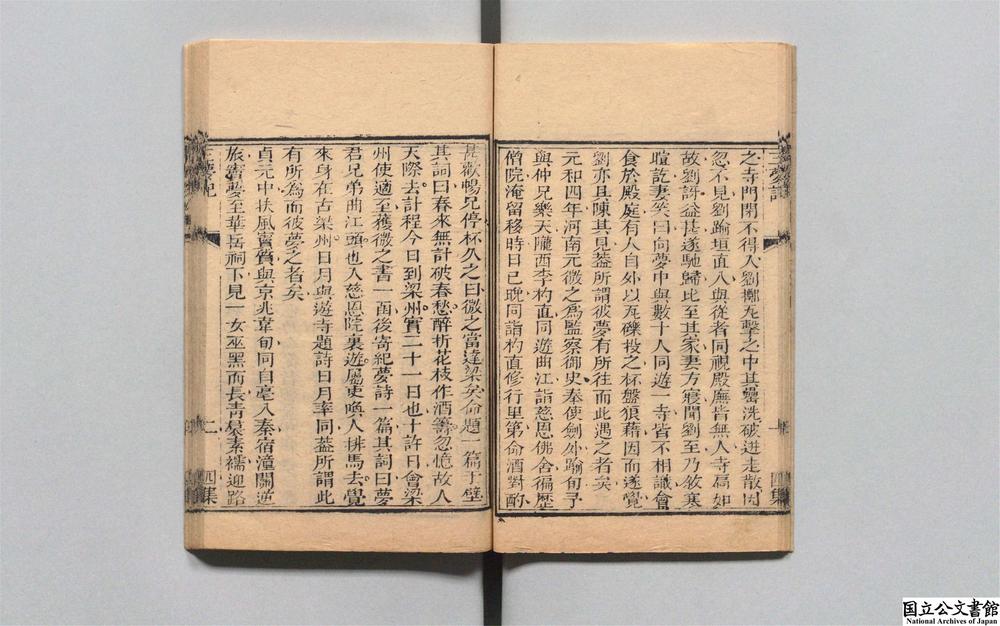 三夢記
一
四集
之寺門閉不得入劉擲瓦擊之中其罍洗破迸走散因
忽不見劉踰垣直入與從者同視殿廡皆無人寺扃如
故劉訝益甚遂馳歸比至其家妻方寢聞劉至乃敘寒
暄訖妻笑曰向夢中與數十人同遊一寺皆不相識會
食於殿庭有人自外以瓦礫投之杯盤狼藉因而遂覺
劉亦且陳其見葢所謂彼夢有所往而此遇之者矣
元和四年河南元微之爲監察御史奉使劍外踰旬予
與仲兄樂天隴西李杓直同遊曲江詣慈恩佛舍徧歷
僧院淹留移時日已晚同詣杓直修行里第命酒對酌
甚歡暢兄停杯久之曰微之當達梁矣命題一篇于壁
其詞曰春來無計破春愁醉折花枝作酒籌忽憶故人
天際去計程今日到梁州實二十一日也十許日會梁
州使適至獲微之書一函後寄紀夢詩一篇其詞曰夢
君兄弟曲江頭也入慈恩院裏遊屬吏喚人排馬去覺
來身在古梁州日月與遊寺題詩日月率同葢所謂此
有所爲而彼夢之者矣
貞元中扶風竇質與京兆韋旬同自亳入秦宿潼關逆
旅竇夢至華岳祠下見一女巫黑而長青裙素襦迎路
三夢記
二
四集
国立公文書館
National Archives of Japan